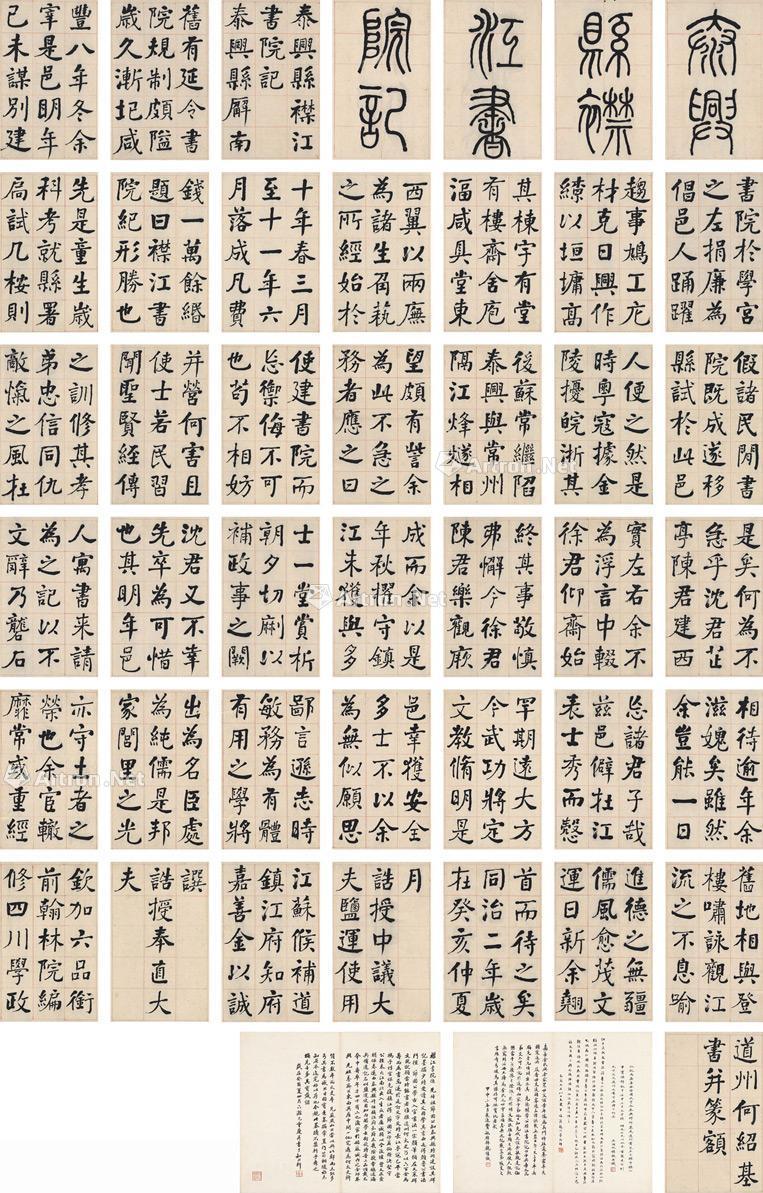 泰興
縣襟
江書
院記
泰興縣襟江
書院記
泰興縣廨南
舊有延令書
院規制頗隘
歲久漸圮咸
豐八年冬余
宰是邑明年
已未謀別建
書院於學宮
之左捐廉為
倡邑人踊躍
趨事鳩工庀
材克日興作
繚以垣墉高
其棟宇有堂
有樓齋舍庖
湢咸具堂東
西翼以兩廡
為諸生執
之所經始於
十年春三月
至十一年六
月落成凡費
錢一萬餘緡
題曰襟江書
院紀形勝也
先是童生歲
科考就縣署
扃試几桉則
假諸民閒書
院既成遂移
縣試於此邑
人便之然是
時粵寇據金
陵擾皖浙其
後蘇常繼陷
泰興與常州
隔江烽燧相
望頗有訾余
為此不急之
務者應之曰
使建書院而
忘禦侮不可
也苟不相妨
并營何害且
使士若民習
聞聖賢經傳
之訓修其孝
弟忠信同仇
敵愾之風在
是矣何為不
急乎沈君芷
亭陳君建西
實左右余不
為浮言中輟
徐君仰齋始
終其事敬慎
弗懈今徐君
陳君樂觀厥
成而余以是
年秋擢守鎮
江未獲與多
士一堂賞析
朝夕切劘以
補政事之闕
沈君又不幸
先卒為可惜
也其明年邑
人寓書來請
為之記以不
文辭乃礱石
相待逾年余
滋媿矣雖然
余豈能一日
忘諸君子哉
茲邑僻在江
表士秀而慤
罕期遠大方
今武功將定
文教脩明是
邑幸獲安全
多士不以余
為無似願思
鄙言遜志時
敏務為有體
有用之學將
出為名臣處
為純儒是邦
家閭里之光
亦守土者之
榮也余官轍
靡常感重經
舊地相與登
樓嘯詠觀江
流之不息喻
進德之無疆
儒風愈茂文
運日新余翹
首而待之矣
同治二年歲
在癸亥仲夏
月
誥授中議大
夫鹽運使用
江蘇候補道
鎮江府知府
嘉善金以誠
譔
誥授奉直大
夫
欽加六品銜
前翰林院編
修四川學政
道州何紹基
書并篆額
Artron.Net